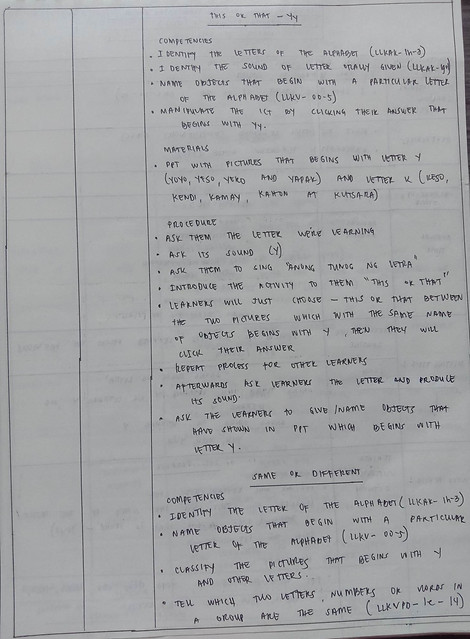 THIS OR THAT - Yy
COMPETENCIES
• IDENTIFY THE LETTERS OF THE ALPHABET (LLKAK-Ih-3)
• IDENTIFY THE SOUND OF LETTER ORALLY GIVEN
• NAME OBJECTS THAT BEGIN WITH A PARTICULAR LETTER
OF THE ALPHABET (LLKV-00-5)
• MANIPULATE THE ICT BY CLICKING THEIR ANSWER THAT
BEGINS WITH Yy.
MATERIALS
• PPT WITH PICTURES THAT BEGINS WITH LETTER Y
(YOYO, YESO, YERO AND YAPAK) AND LETTER K (KESO,
KENDI, KAMAY, KAHON AT KUTSARA)
PROCEDURE
• ASK THEM THE LETTER WE'RE LEARNING
• ASK ITS SOUND (Y)
• ASK THEM TO SING "ANONG TUNOG NG LETRA"
• INTRODUCE THE ACTIVITY TO THEM "THIS OR THAT"
• LEARNERS WILL JUST CHOOSE - THIS OR THAT BETWEEN
THE TWO PICTURES WHICH WITH THE SAME NAME
OF OBJECTS BEGINS WITH Y, THEN THEY WILL
CLICK THEIR ANSWER
• REPEAT PROCESS FOR OTHER LEARNERS
• AFTERWARDS ASK LEARNERS THE LETTER AND PRODUCE
ITS SOUND.
• ASK THE LEARNERS TO GIVE/NAME OBJECTS THAT
HAVE SHOWN IN PPT WHICH BEGINS WITH
LETTER Y.
SAME OR DIFFERENT
COMPETENCIES
• IDENTIFY THE LETTER OF THE ALPHABET (LLKAK-Ih-3)
• NAME OBJECTS THAT BEGIN WITH A PARTICULAR
LETTER OF THE ALPHABET (LLKV-00-5)
• CLASSIFY THE PICTURES THAT BEGINS WITH Y
AND OTHER LETTERS.
• TELL WHICH TWO LETTERS, NUMBERS OR WORDS IN
A GROUP ARE THE SAME (LLKVPD-Ie-14)